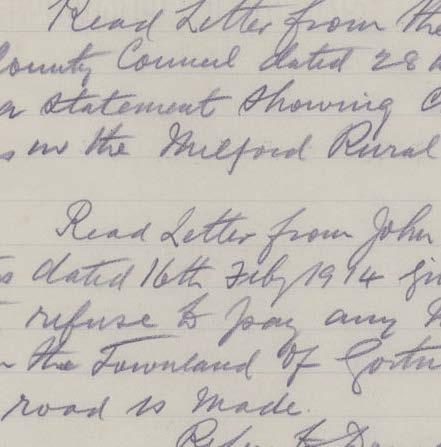 Read Letter from the
County Council dated 28
a statement showing
s in the Milford Rural
Read Letter from John
s dated 16th Feby 1914
refuse to pay any
the Townland of Gortn
road is made.